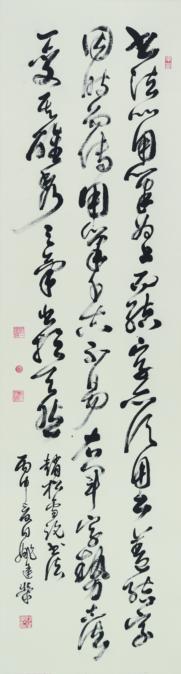 書法以用筆為上而結字亦須用工蓋結字
因時而傳用筆千古不易右軍字勢古法
一變其雄秀之氣出於天然
趙松雪說書法
丙申夏日姚建